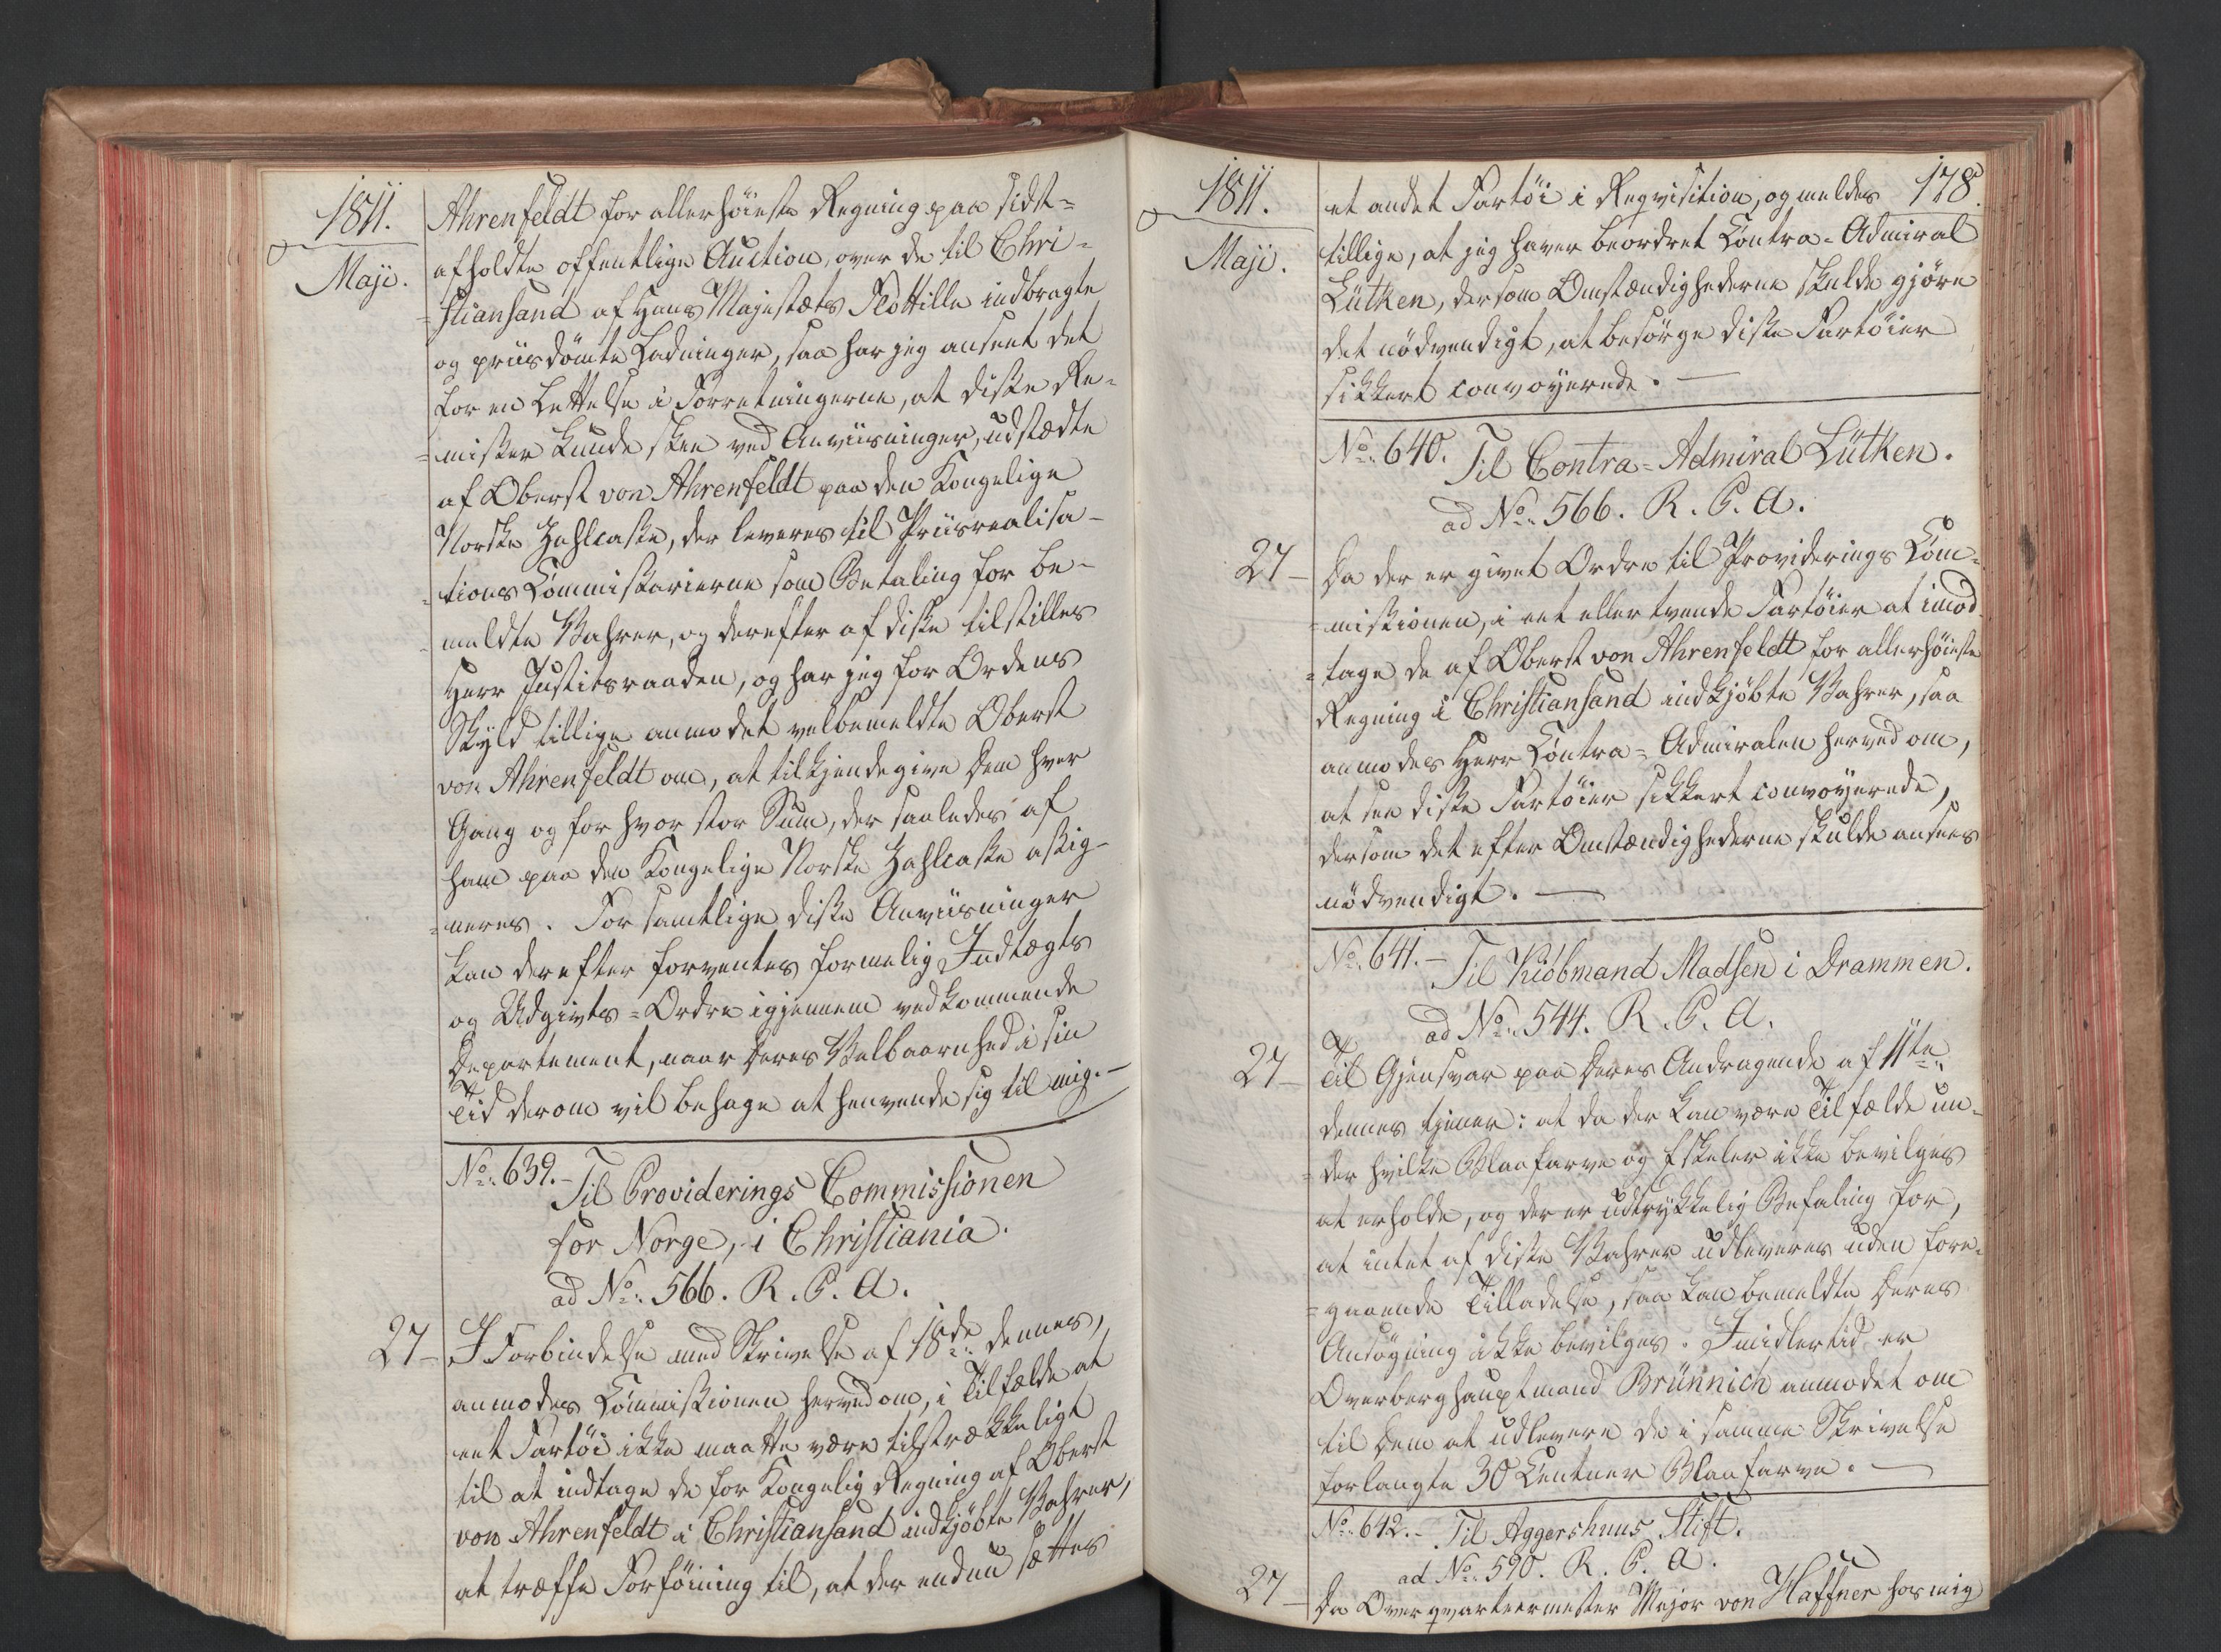 1811.
Maji.
Ahrenfeldt for allerhøieste Regning paa sidst-
afholdte offentlige Auction, over de til Chri-
-stiansand af Hans Majestæts Flottille indbragte
og priisdømte Ladninger, saa har jeg anseet det
for en Lettelse i Forretningerne, at disse Re-
-misser kunde skee ved Anviisninger, udstædte
af Oberst von Ahrenfeldt paa den Kongelige
Norske Zahlcasse, der leveres til Priisrealisa-
-tions Commissarierne som Betaling for be-
-meldte Vahrer, og derefter af disse tilstilles
Herr Justitsraaden, og har jeg for Ordens
Skyld tillige anmodet velbemeldte Oberst
von Ahrenfeldt om, at tilkjendegive Dem hver
Gang og for hvor stor Sum, der saaledes af
ham paa den Kongelige Norske Zahlcasse assig-
-neres. For samtlige disse Anviisninger
kan derefter forventes formelig Indtægts
og Udgivts-Ordre igjennem vedkommende
Departement, naar Deres Velbaarnhed i sin
Tid derom vil behage at henvende sig til mig.-
No. 639.- Til Providerings Commissionen
for Norge, i Christiania.
ad No. 566. R. P. A.
27- I Forbindelse med Skrivelse af 18de dennes,
anmodes Commissionen herved om, i Tilfælde at
eet Fartøi ikke maatte være tilstrækkeligt
til at indtage de for Kongelig Regning af Oberst
von Ahrenfeldt i Christiansand indkjøbte Vahrer,
at træffe Forføining til, at der endnu sættes
1811.
178.
Maji.
et andet Fartøi i Reqvisition, og meldes
tillige, at jeg haver beordret Contra-Admiral
Lütken, dersom Omstændighederne skulde gjøre
det nødvendigt, at besørge disse Fartøier
sikkert convoyerede.-
No. 640. Til Contra-Admiral Lütken.
ad No. 566. R. P. A.
27- Da der er givet Ordre til Providerings Com-
-missionen, i eet eller tvende Fartøier at imod-
-tage de af Oberst von Ahrenfeldt for allerhøieste
Regning i Christiansand indkjøbte Vahrer, saa
anmodes Herr Contra-Admiralen herved om,
at see disse Fartøier sikkert convoyerede,
dersom det efter Omstændighederne skulde ansees
nødvendigt.-
No. 641.- Til Kiøbmand Madsen i Drammen.
ad No. 544. R. P. A.
27- Til Gjensvar paa Deres Andragende af 11te
dennes tjener: at da der kan være Tilfælde un-
-der hvilke Blaafarve og Eskeler ikke bevilges
at erholde, og der er udtrykkelig Befaling for,
at intet af disse Vahrer udleveres uden fore-
-gaaende Tilladelse, saa kan bemeldte Deres
Ansøgning ikke bevilges. Imidlertid er
Overberghauptmand Brünnich anmodet om
til Dem at udlevere de i samme Skrivelse
forlangte 30 Centner Blaafarve.-
No. 642.- Til Aggershuus Stift.
ad No. 590. R. P. A.
27- Da Overqvarteermester Major von Haffner hos mig